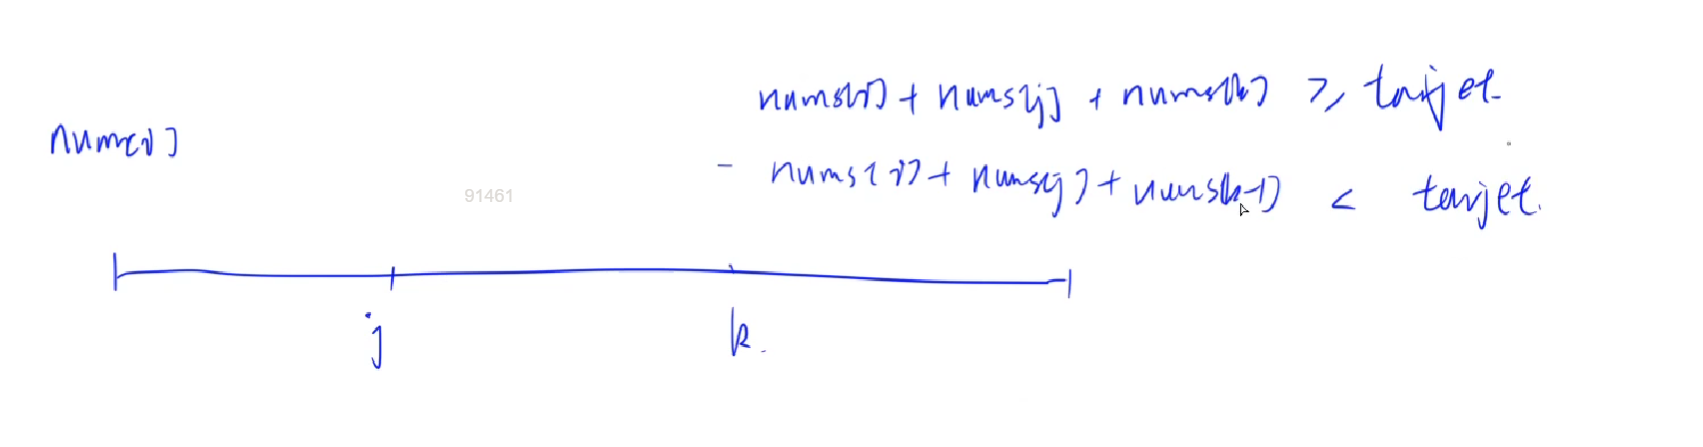 nums[i] + nums[j] + nums[k] >= target.
nums[i]
- nums[i] + nums[j] + nums[k-1] < target.
91461
j
k.